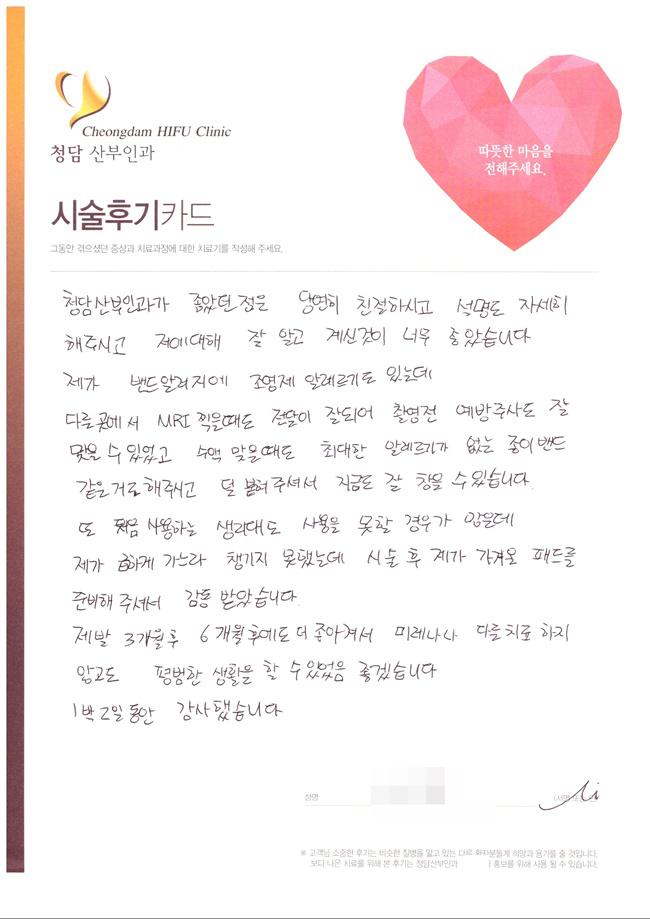 Cheongdam HIFU Clinic
청담 산부인과
따뜻한 마음을
전해주세요.
시술후기카드
그동안 겪으셨던 증상과 치료과정에 대한 치료기를 작성해 주세요.
청담산부인과가 좋았던점은 당연히 친절하시고 설명도 자세히
해주시고 저에대해 잘 알고 계신것이 너무 좋았습니다
제가 밴드알러지에 조영제 알레르기도 있는데
다른곳에서 MRI 찍을때도 전달이 잘되어 촬영전 예방주사도 잘
맞을 수 있었고 수액 맞을때도 최대한 알레르기가 없는 종이밴드
같은거로해주시고 덜 붙혀주셔서 지금도 잘 참을 수 있습니다.
또 처음 사용하는 생리대도 사용을 못할 경우가 많은데
제가 급하게 가느라 챙기지 못했는데 시술 후 제가 가져온 패드를
준비해 주셔서 감동 받았습니다.
제발 3개월후 6개월후에도 더 좋아져서 미레나나 다른치료 하지
않고도 평범한 생활을 할 수 있었음 좋겠습니다
1박2일동안 감사했습니다
성명
(서명
※ 고객님 소중한 후기는 비슷한 질병을 앓고 있는 다른 환자분들게 희망과 용기를 줄 것입니다.
보다 나은 치료를 위해 본 후기는 청담산부인과 홍보를 위해 사용 될 수 있습니다.